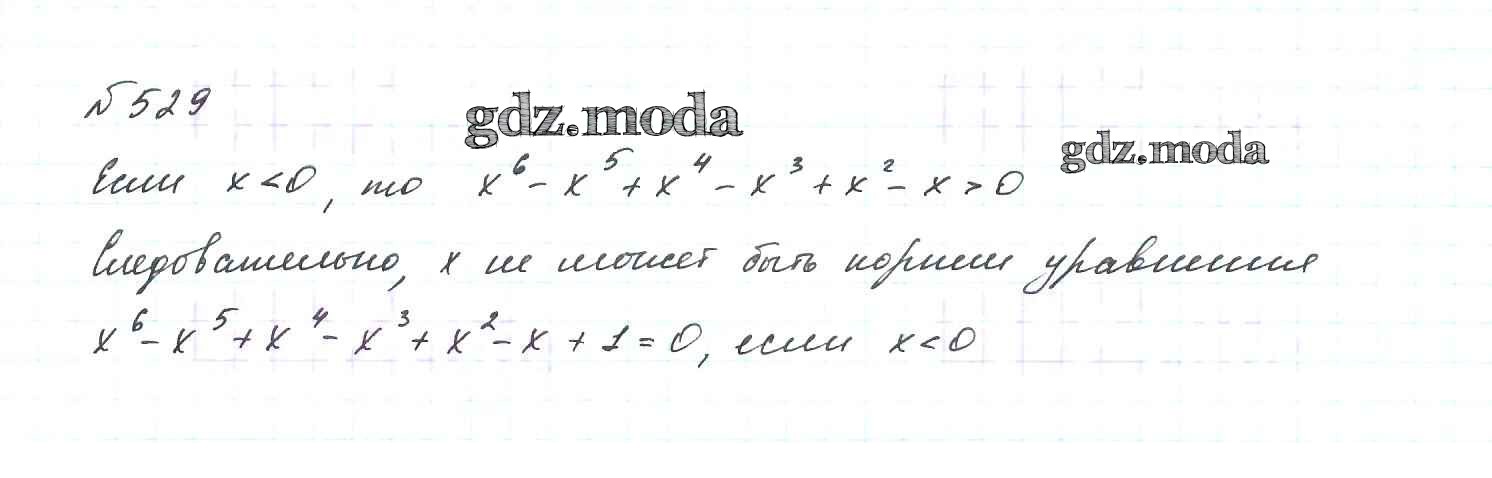 №529
gdz.moda
gdz.moda
Если x<0, то x⁶-x⁵+x⁴-x³+x²-x>0
Следовательно, x не может быть корнем уравнения
x⁶-x⁵+x⁴-x³+x²-x+1=0, если x<0